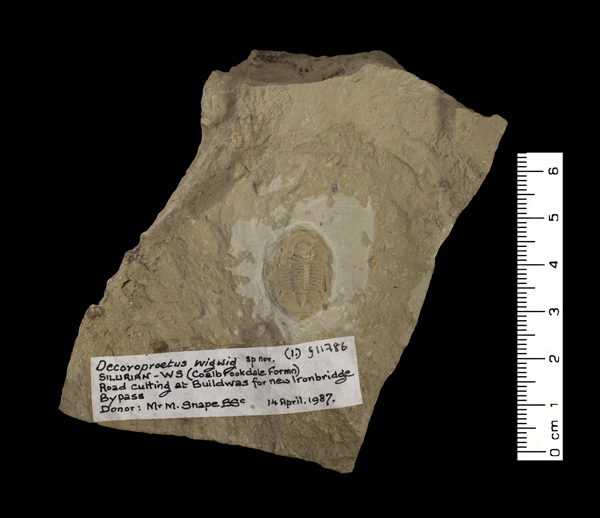 Decoroproetus wigwig sp nov. (1.) G 11786
SILURIAN - WS (Coalbrookdale Formn)
Road cutting at Buildwas for new Ironbridge
Bypass
Donor: Mr M. Snape BSc 14 April. 1987.
6
5
4
3
2
1
0 cm